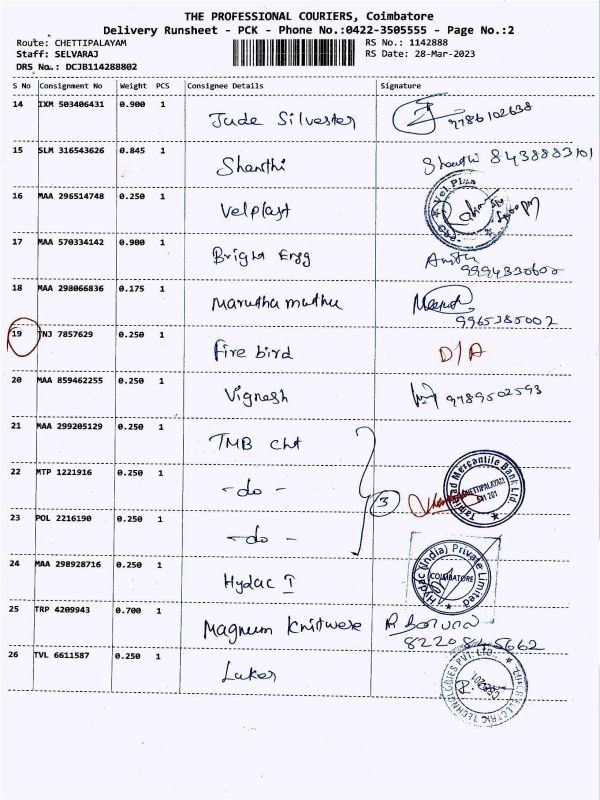 THE PROFESSIONAL COURIERS, Coimbatore
Delivery Runsheet - PCK - Phone No.:0422-3505555 - Page No.:2
Route: CHETTIPALAYAM RS No.: 1142888
Staff: SELVARAJ RS Date: 28-Mar-2023
DRS No.: DCJB114288802
S No Consignment No Weight PCS Consignee Details Signature
14 IXM 503406431 0.900 1 Jude Silvester 9786102638
15 SLM 316543626 0.845 1 Shanthi Shanthi 8438883101
16 MAA 296514748 0.250 1 Velplast Vel Plas
17 MAA 570334142 0.900 1 Bright Engg 9994330600
18 MAA 298066836 0.175 1 Marutha muthu 9965385002
19 TNJ 7857629 0.250 1 Fire bird D/A
20 MAA 859462255 0.250 1 Vignesh 9789502593
21 MAA 299205129 0.250 1 TMB cht
22 MTP 1221916 0.250 1 -do- 3 Tamilnad Mercantile Bank Ltd. CHETTIPALAYAM 641 201
23 POL 2216190 0.250 1 -do-
24 MAA 298928716 0.250 1 Hydac I Hydac (India) Private Limited COIMBATORE
25 TRP 4209943 0.700 1 Magnum Knitwere 8220845662
26 TVL 6611587 0.250 1 Laker ELECTRIC TECHNOLOGIES PVT. LTD.